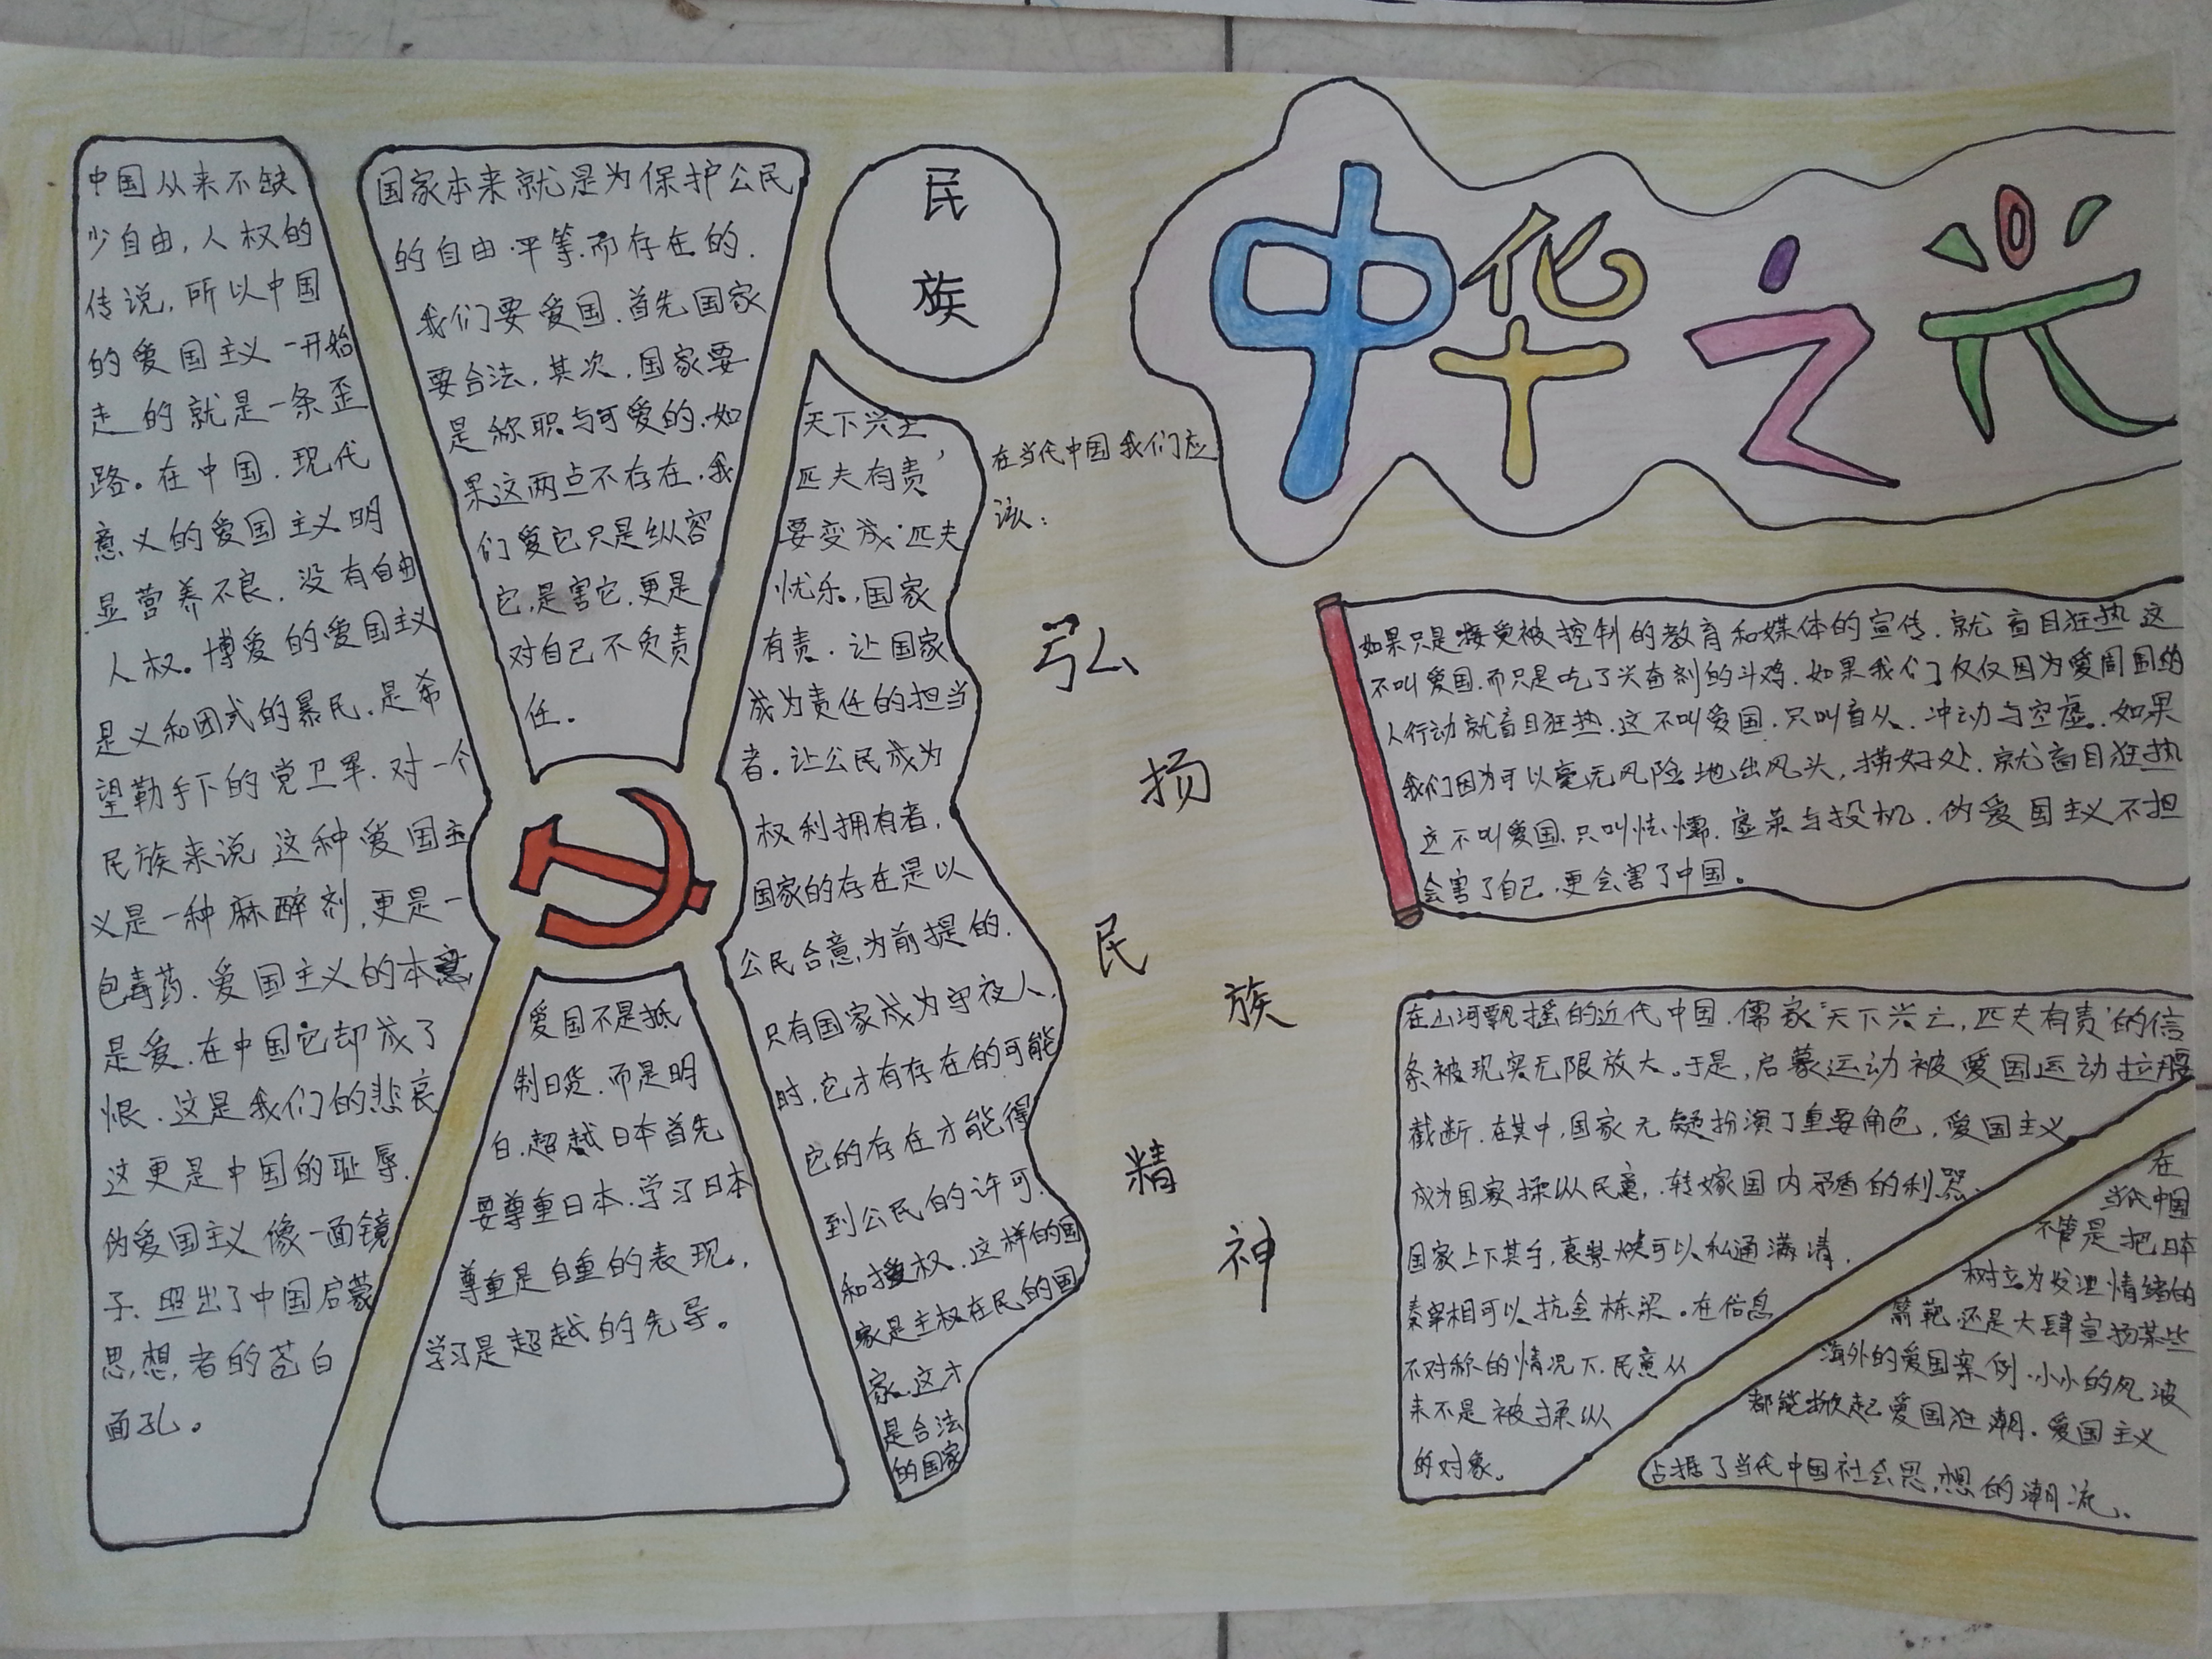 中华之光
民
族
中国从来不缺
少自由,人权的
传说,所以中国
的爱国主义一开始
走的就是一条歪
路。在中国.现代
意义的爱国主义明
显营养不良.没有自由
人权。博爱的爱国主义
是义和团式的暴民.是希
望勒手下的党卫军.对一个
民族来说这种爱国主
义是一种麻醉剂,更是一
包毒药.爱国主义的本意
是爱.在中国它却成了
恨.这是我们的悲哀
这更是中国的耻辱.
伪爱国主义像一面镜
子、照出了中国启蒙
思想者的苍白
面孔。
国家本来就是为保护公民
的自由.平等.而存在的.
我们要爱国.首先国家
要合法,其次.国家要
是称职与可爱的.如
果这两点不存在.我
们爱它只是纵容
它,是害它.更是
对自己不负责
任.
爱国不是抵
制日货.而是明
白.超越日本首先
要尊重日本.学习日本
尊重是自重的表现,
学习是超越的先导。
天下兴亡
匹夫有责'
要变成'匹夫
忧乐,国家
有责.让国家
成为责任的担当
者。让公民成为
权利拥有者,
国家的存在是以
公民合意为前提的.
只有国家成为守夜人.
时.它才有存在的可能
它的存在才能得
到公民的许可.
和授权.这样的国
家是主权在民的国
家.这才
是合法
的国家
在当代中国我们应
该:
弘
扬
民
族
精
神
如果只是接受被控制的教育和媒体的宣传.就盲目狂热这
不叫爱国.而只是吃了兴奋剂的斗鸡.如果我们仅仅因为爱周围的
人行动就盲目狂热.这不叫爱国.只叫盲从.冲动与空虚.如果
我们因为可以毫无风险地出风头,捞好处.就盲目狂热
这不叫爱国.只叫怯懦.虚荣与投机.伪爱国主义不担
会害了自己.更会害了中国。
在山河飘摇的近代中国.儒家'天下兴亡,匹夫有责'的信
条被现实无限放大.于是,启蒙运动被爱国运动拦腰
截断.在其中,国家无疑扮演了重要角色,爱国主义
成为国家操纵民意,转嫁国内矛盾的利器.
国家上下其手,袁崇焕可以私通满清,
秦宰相可以抗金栋梁.在信息
不对称的情况下.民意从
来不是被操纵
的对象.
在
当代中国
不管是把日本
树立为发泄情绪的
箭靶还是大肆宣扬某些
海外的爱国案例.小小的风波
都能掀起爱国狂潮.爱国主义
占据了当代中国社会思想的潮流.